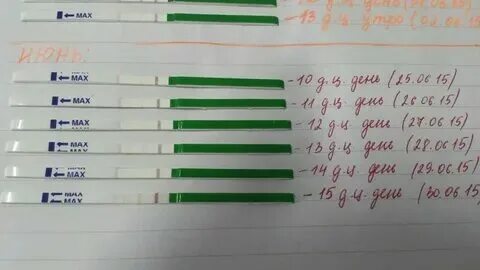 13 д.ц. утро (02.06.15)
июнь:
MAX - 10 д.ц. день (25.06.15)
MAX - 11 д.ц. день (26.06.15)
MAX - 12 д.ц. день (27.06.15)
MAX - 13 д.ц. день (28.06.15)
MAX - 14 д.ц. день (29.06.15)
MAX - 15 д.ц. день (30.06.15)